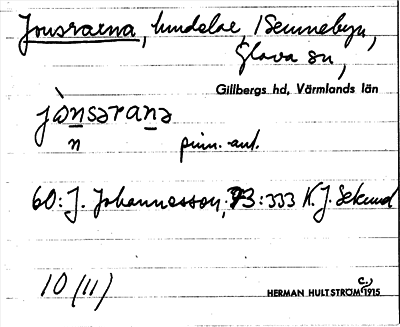 Jonsrarna, lundelar, Sennebyn,
Glava sn,
Gillbergs hd, Värmlands län
jònsərana
n pinn. ant.
60: J. Johannesson, 73:333 K. J. Sekund
10 (11)
HERMAN HULTSTRÖM c. 1915